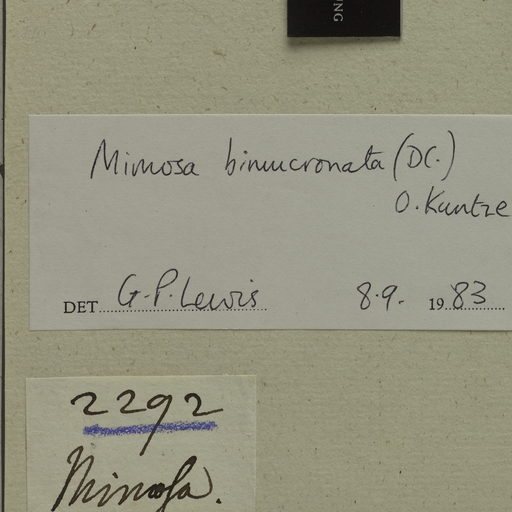 NG
Mimosa bimucronata (DC.)
O. Kuntze
DET G.P. Lewis 8.9. 1983
2292
Mimosa.